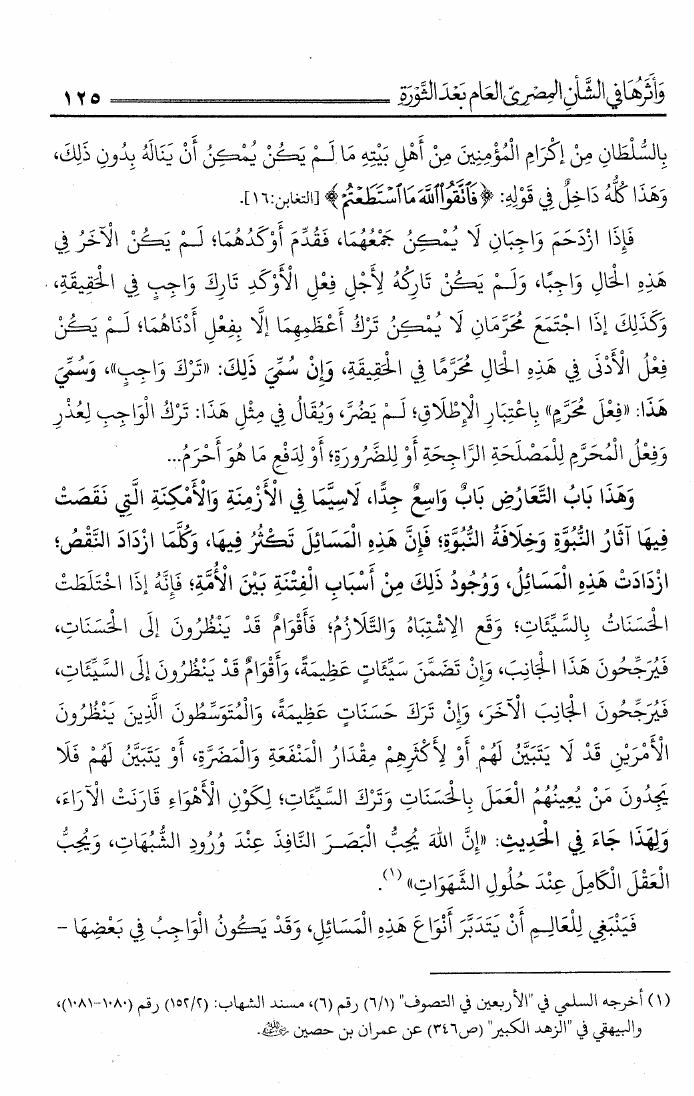 وَأَثَرُهَا فِي الشَّأْنِ المِصْرِيّ العَام بَعْدَ الثَّوْرَةِ ١٢٥
بِالسُّلْطَانِ مِنْ إِكْرَامِ الْمُؤْمِنِينَ مِنْ أَهْلِ بَيْتِهِ مَا لَمْ يَكُنْ يُمْكِنُ أَنْ يَنَالَهُ بِدُونِ ذَلِكَ،
وَهَذَا كُلُّهُ دَاخِلٌ فِي قَوْلِهِ: ﴿فَٱتَّقُوا۟ ٱللَّهَ مَا ٱسْتَطَعْتُمْ﴾ [التغابن:١٦].
فَإِذَا ازْدَحَمَ وَاجِبَانِ لَا يُمْكِنُ جَمْعُهُمَا، فَقُدِّمَ أَوْكَدُهُمَا؛ لَمْ يَكُنْ الْآخَرُ فِي
هَذِهِ الْحَالِ وَاجِبًا، وَلَمْ يَكُنْ تَارِكُهُ لِأَجْلِ فِعْلِ الْأَوْكَدِ تَارِكَ وَاجِبٍ فِي الْحَقِيقَةِ،
وَكَذَلِكَ إذَا اجْتَمَعَ مُحَرَّمَانِ لَا يُمْكِنُ تَرْكُ أَعْظَمِهِمَا إلَّا بِفِعْلِ أَدْنَاهُمَا؛ لَمْ يَكُنْ
فِعْلُ الْأَدْنَى فِي هَذِهِ الْحَالِ مُحَرَّمًا فِي الْحَقِيقَةِ، وَإِنْ سُمِّيَ ذَلِكَ: «تَرْكَ وَاجِبٍ»، وَسُمِّيَ
هَذَا: «فِعْلَ مُحَرَّمٍ» بِاعْتِبَارِ الْإِطْلَاقِ؛ لَمْ يَضُرَّ، وَيُقَالُ فِي مِثْلِ هَذَا: تَرْكُ الْوَاجِبِ لِعُذْرٍ
وَفِعْلُ الْمُحَرَّمِ لِلْمَصْلَحَةِ الرَّاجِحَةِ أَوْ لِلضَّرُورَةِ؛ أَوْ لِدَفْعِ مَا هُوَ أَحْرَمُ...
وَهَذَا بَابُ التَّعَارُضِ بَابٌ وَاسِعٌ جِدًّا، لَاسِيَّمَا فِي الْأَزْمِنَةِ وَالْأَمْكِنَةِ الَّتِي نَقَصَتْ
فِيهَا آثَارُ النُّبُوَّةِ وَخِلَافَةُ النُّبُوَّةِ؛ فَإِنَّ هَذِهِ الْمَسَائِلَ تَكْثُرُ فِيهَا، وَكُلَّمَا ازْدَادَ النَّقْصُ؛
ازْدَادَتْ هَذِهِ الْمَسَائِلُ، وَوُجُودُ ذَلِكَ مِنْ أَسْبَابِ الْفِتْنَةِ بَيْنَ الْأُمَّةِ؛ فَإِنَّهُ إذَا اخْتَلَطَتْ
الْحَسَنَاتُ بِالسَّيِّئَاتِ؛ وَقَع الِاشْتِبَاهُ وَالتَّلَازُمُ؛ فَأَقْوَامٌ قَدْ يَنْظُرُونَ إلَى الْحَسَنَاتِ،
فَيُرَجِّحُونَ هَذَا الْجَانِبَ، وَإِنْ تَضَمَّنَ سَيِّئَاتٍ عَظِيمَةً، وَأَقْوَامٌ قَدْ يَنْظُرُونَ إلَى السَّيِّئَاتِ،
فَيُرَجِّحُونَ الْجَانِبَ الْآخَرَ، وَإِنْ تَرَكَ حَسَنَاتٍ عَظِيمَةً، وَالْمُتَوَسِّطُونَ الَّذِينَ يَنْظُرُونَ
الْأَمْرَيْنِ قَدْ لَا يَتَبَيَّنُ لَهُمْ أَوْ لِأَكْثَرِهِمْ مِقْدَارُ الْمَنْفَعَةِ وَالْمَضَرَّةِ، أَوْ يَتَبَيَّنُ لَهُمْ فَلَا
يَجِدُونَ مَنْ يُعِينُهُمُ الْعَمَلَ بِالْحَسَنَاتِ وَتَرْكَ السَّيِّئَاتِ؛ لِكَوْنِ الْأَهْوَاءِ قَارَنَتْ الْآرَاءَ،
وَلِهَذَا جَاءَ فِي الْحَدِيثِ: «إِنَّ اللهَ يُحِبُّ الْبَصَرَ النَّافِذَ عِنْدَ وُرُودِ الشُّبُهَاتِ، وَيُحِبُّ
الْعَقْلَ الْكَامِلَ عِنْدَ حُلُولِ الشَّهَوَاتِ» (١).
فَيَنْبَغِي لِلْعَالِمِ أَنْ يَتَدَبَّرَ أَنْوَاعَ هَذِهِ الْمَسَائِلِ، وَقَدْ يَكُونُ الْوَاجِبُ فِي بَعْضِهَا -
(١) أخرجه السلمي في "الأربعين في التصوف" (٦/١) رقم (٦)، مسند الشهاب: (١٥٢/٢) رقم (١٠٨٠-١٠٨١)،
والبيهقي في "الزهد الكبير" (ص٣٤٦) عن عمران بن حصين رضي الله عنه.